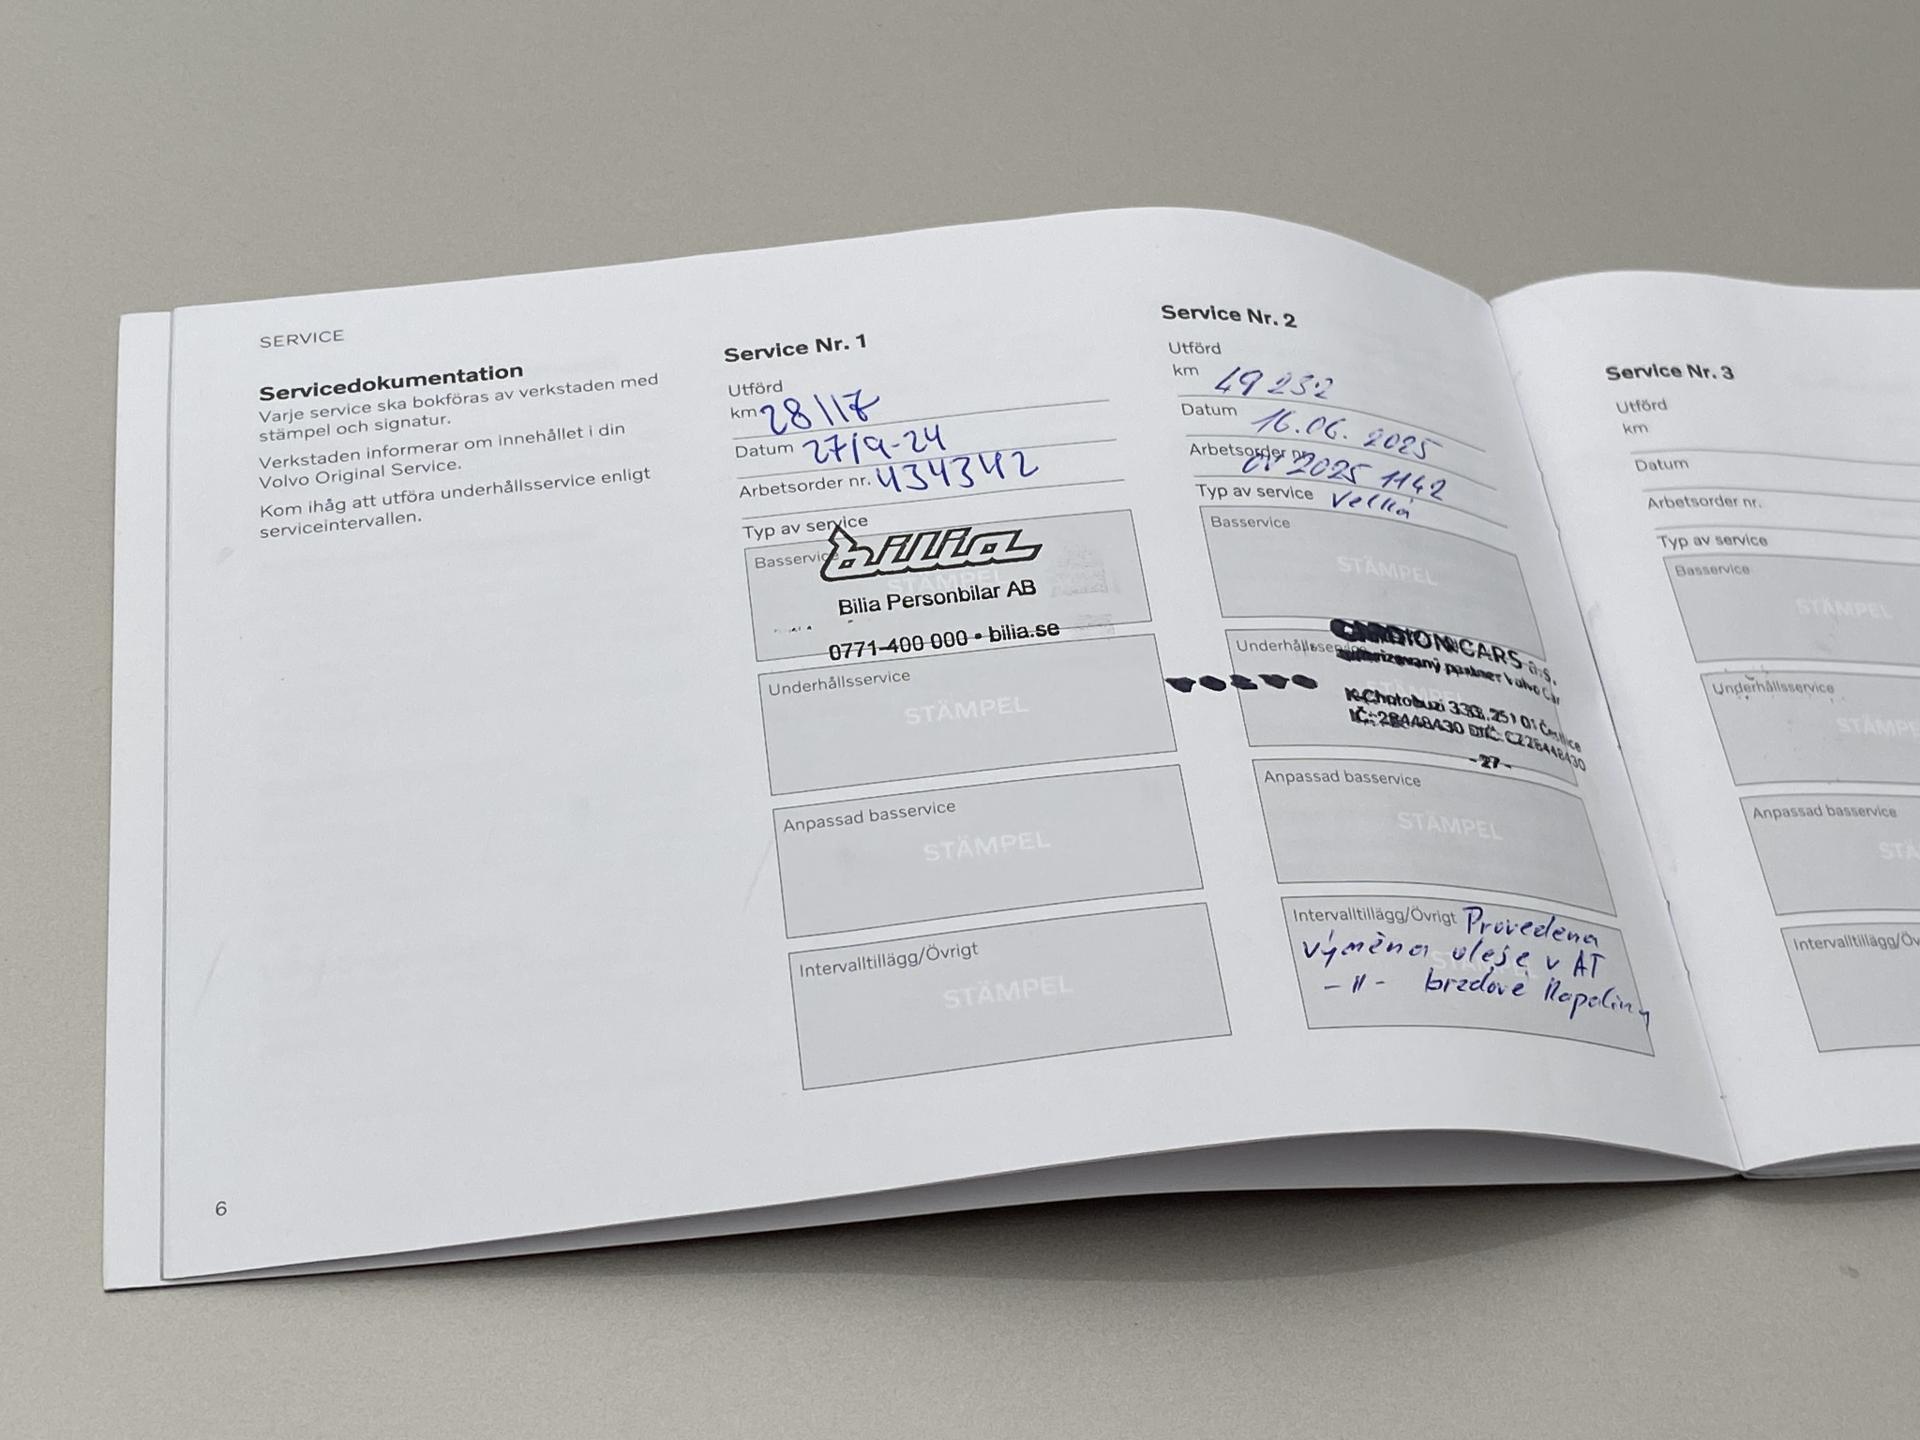 SERVICE
Servicedokumentation
Varje service ska bokföras av verkstaden med
stämpel och signatur.
Verkstaden informerar om innehållet i din
Volvo Original Service.
Kom ihåg att utföra underhållsservice enligt
serviceintervallen.
6
Service Nr. 1
Utförd
km 28117
Datum 27/9-24
Arbetsorder nr. 434342
Typ av service
Basservice
STÄMPEL
bilia
Bilia Personbilar AB
0771-400 000 • bilia.se
Underhållsservice
STÄMPEL
Anpassad basservice
STÄMPEL
Intervalltillägg/Övrigt
STÄMPEL
Service Nr. 2
Utförd
km 49 232
Datum 16.06. 2025
Arbetsorder nr. 2025 1142
Typ av service Velká
Basservice
STÄMPEL
Underhållsservice
VOLVO
CARDION CARS a.s.
autorizovaný partner Volvo Car
K Chotobuzi 333, 251 01 Čestlice
IČ: 28448430 DIČ: CZ28448430
- 27 -
Anpassad basservice
STÄMPEL
Intervalltillägg/Övrigt Provedena
výměna oleje v AT
STÄMPEL
- 11 - brzdové kapaliny
Service Nr. 3
Utförd
km
Datum
Arbetsorder nr.
Typ av service
Basservice
STÄMPEL
Underhållsservice
STÄMPE
Anpassad basservice
STÄ
Intervalltillägg/Öv